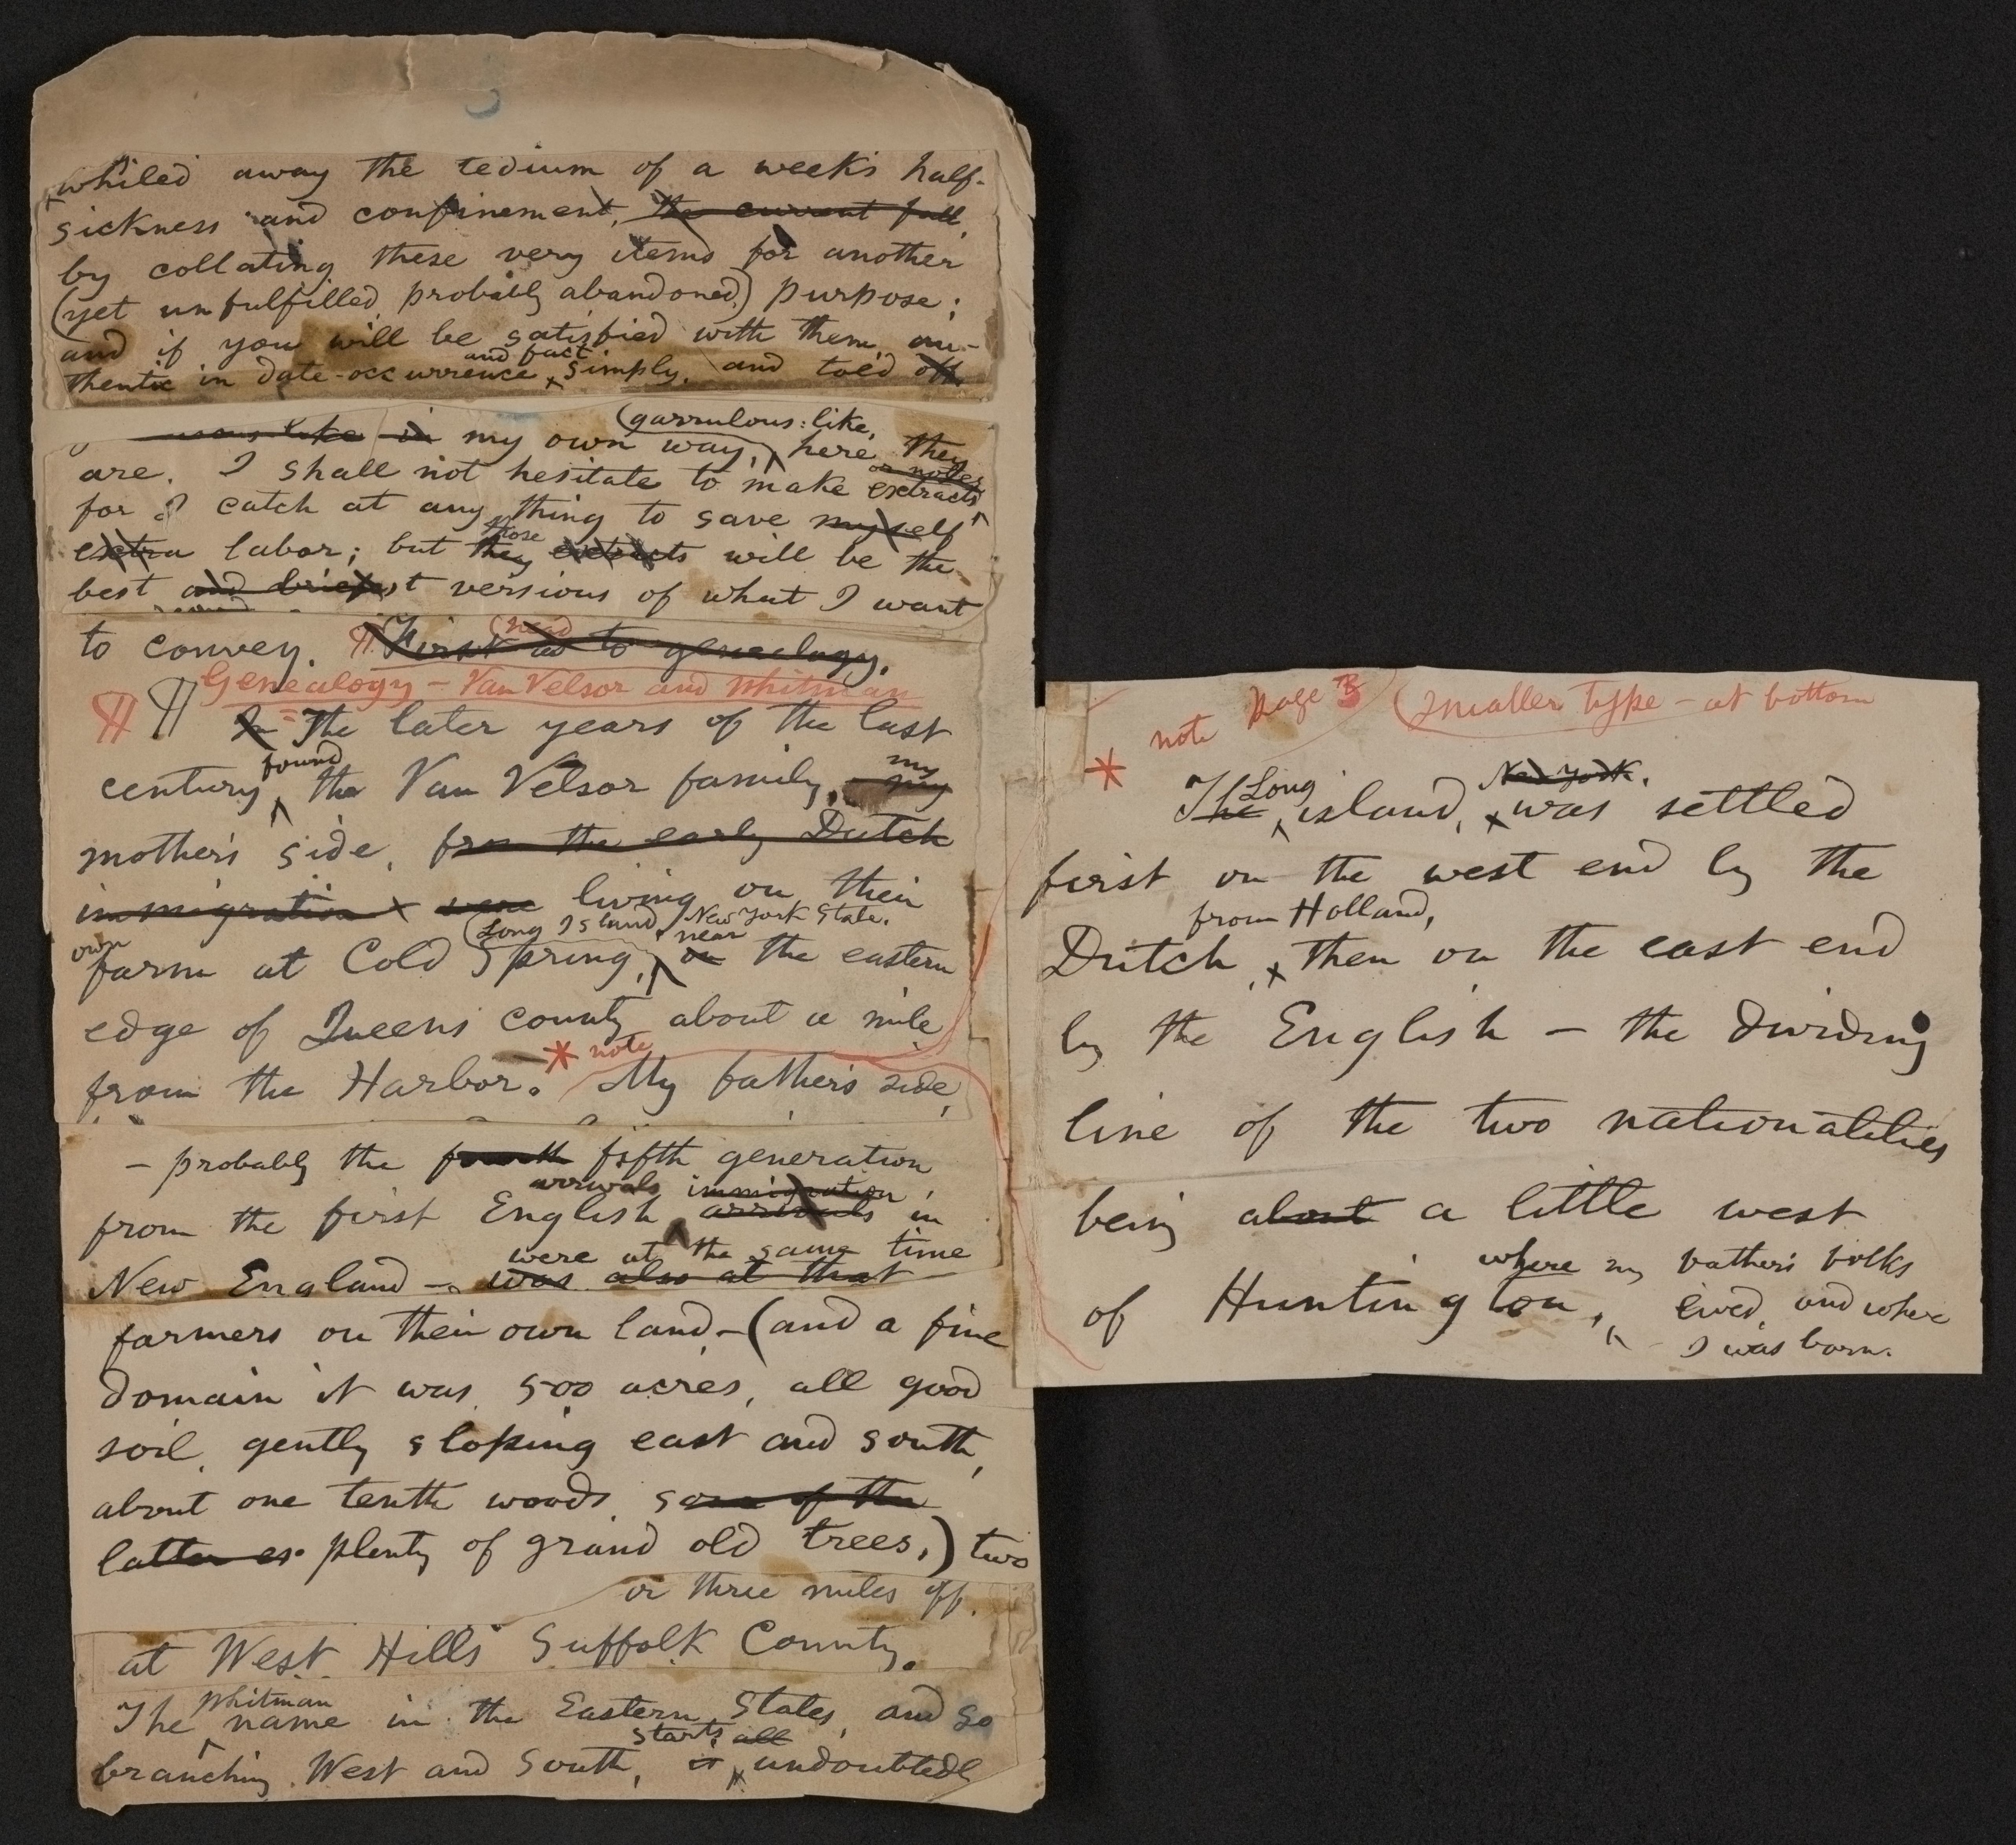 3
whiled away the tedium of a week's half-
sickness and confinement, the current fall,
by collating these very items for another
(yet unfulfilled, probably abandoned,) purpose;
and if you will be satisfied with them, au-
and fact
thentic in date-occurrence simply, and told off
(garrulous-like,
in my own way, here they
or notes
are. I shall not hesitate to make extracts
for I catch at any thing to save myself
those
extra labor; but they extracts will be the
best and briefest versions of what I want
to convey. ¶ First as to genealogy.
(head
Genealogy – Van Velsor and Whitman
¶ ¶ In The later years of the last
found my
century the Van Velsor family, my
mother's side, from the early Dutch
immigration were living on their
(Long Island, New York State.
own near
farm at Cold Spring, on the eastern
edge of Queens county about a mile
* note
from the Harbor. My father's side,
– probably the fourth fifth generation
arrivals immigration,
from the first English arrivals in
were at the same time
New England – was also at that
farmers on their own land – (and a fine
domain it was, 500 acres, all good
soil, gently sloping east and south,
about one tenth woods, some of the
latter plenty of grand old trees,) two
or three miles off,
at West Hills Suffolk County.
Whitman
The name in the Eastern States, and so
starts all
branching West and South, is undoubtedly
note Page 3 (smaller type – at bottom
*
Long New York.
The island, was settled
first on the west end by the
from Holland,
Dutch, then on the east end
by the English – the dividing
line of the two nationalities
being about a little west
where my father's folks
of Huntington, lived, and where
I was born.